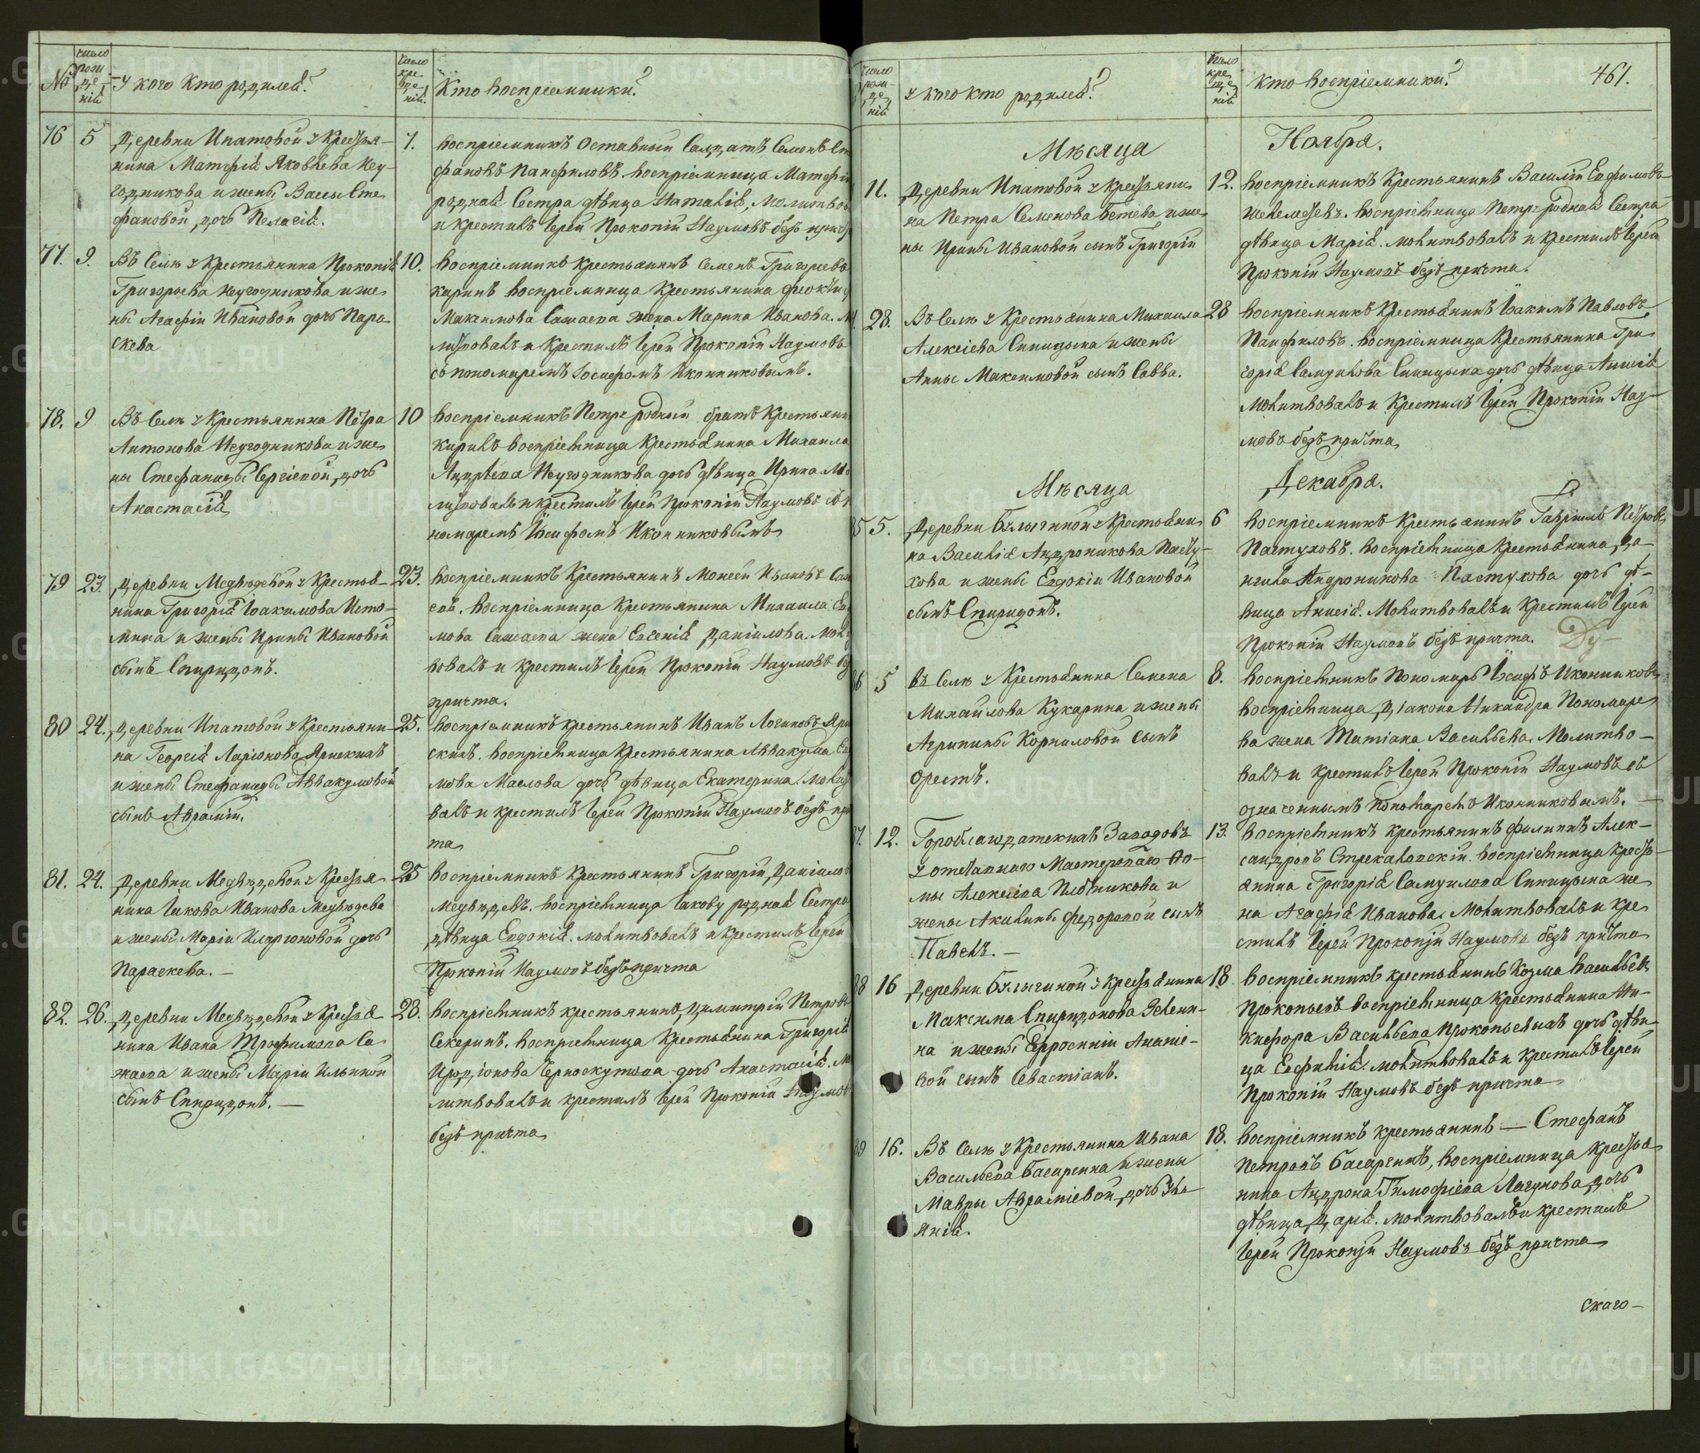 №
число рожденій
У кого кто родился?
число крещеній
Кто воспріемники?
76
5
Деревни Ипатовой у Крестья-
нина Матфія Яковлева Неу-
годникова и жены Вассы Сте-
фановой, дочь Пелагія.
7.
Воспріемникъ Отставный Салдатъ Семенъ
фановъ Панфиловъ. воспріемница Матфі
родная Сестра дѣвица Наталія, Молитво
и крестилъ Іерей Прокопій Наумовъ безъ
77.
9.
Въ Селѣ у Крестьянина Прокопія
Григорьева Неугодникова и же-
ны Агафіи Ивановой дочь Пара-
скева
10.
Воспріемникъ крестьянинъ Семенъ Григорьевъ
каринъ воспріемница Крестьянина
Максимова Сажаева жена Марина Иванова.
литвовалъ и крестилъ Іерей Прокопій Наумовъ
со пономаремъ Іосифомъ Иконниковымъ.
78.
9
Въ Селѣ у Крестьянина Петра
Антонова Неугодникова и же-
ны Стефаниды Сергіевой, дочь
Анастасія
10
Воспріемникъ Петру родный братъ Крестьянин
Кирилъ воспріемница Крестьянина Михаила
Андреева Неугодникова дочь дѣвица Ирина
литвовалъ и крестилъ Іерей Прокопій Наумовъ
номаремъ Іосифомъ Иконниковымъ
79
23.
Деревни Медвѣдевой у Крестья-
нина Григорія Іоакимова Исто-
мина и жены Ирины Ивановой
сынъ Спиридонъ.
23.
Воспріемникъ Крестьянинъ Моисей Ивановъ
воспріемница Крестьянина Михаила
мова Сажаева жена Евгенія Даніилова.
вовалъ и крестилъ Іерей Прокопій Наумовъ
причта.
80
24.
Деревни Ипатовой у Крестьяни-
на Георгія Ларіонова
и жены Стефаниды Аввакумовой
сынъ Авраамій.
25.
воспріемникъ крестьянинъ Иванъ Логиновъ
воспріемница Крестьянина Аввакума
мова Маслова дочь дѣвица Екатерина.
валъ и крестилъ Іерей Прокопій Наумовъ безъ при
та
81.
24.
Деревни Медвѣдевой у Крестья-
нина Іякова Иванова Медвѣдева
и жены Маріи Иларіоновой дочь
Параскева. —
25
Воспріемникъ Крестьянинъ Григорій Даніило
Медвѣдевъ. воспріемница Іакову родная Сестра
дѣвица Евдокія. молитвовалъ и крестилъ Іерей
Прокопій Наумовъ безъ причта
82.
26.
Деревни Медвѣдевой у Крестья-
нина Ивана Трофимова Са-
жаева и жены Маріи Ильиной
сынъ Спиридонъ. —
28.
Воспріемникъ крестьянинъ Димитрій Петровъ
Секеринъ. воспріемница Крестьянина Григорія
Иродіонова Черноскутова дочь Анастасія.
литвовалъ и крестилъ Іерей Прокопій Наумовъ
безъ причта
число рожденій
у кого кто родился?
число крещеній
кто воспріемники?
461.
Мѣсяца
Ноября.
11.
Деревни Ипатовой у Крестьяни-
на Петра Семенова Бетева и же-
ны Ирины Ивановой сынъ Григорій
12.
Воспріемникъ Крестьянинъ Василій Евфимовъ
воспріемница Петру родная Сестра
дѣвица Марія. молитвовалъ и крестилъ Іерей
Прокопій Наумовъ безъ причта.
28.
Въ Селѣ у Крестьянина Михаила
Алексіева Синицына и жены
Анны Максимовой сынъ Савва.
28
Воспріемникъ Крестьянинъ Іоакимъ Павловъ
Панфиловъ. воспріемница Крестьянина Гри-
горія Самуилова Синицына дочь дѣвица Анисія
Молитвовалъ и крестилъ Іерей Прокопій Нау-
мовъ безъ причта
Мѣсяца
Декабря.
85
5.
Деревни Булыгиной у Крестьяни-
на Василія Андроникова Пасту-
хова и жены Евдокіи Ивановой
сынъ Спиридонъ.
6
Воспріемникъ Крестьянинъ Гавріилъ Петровъ
Пастуховъ. воспріемница Крестьянина Да-
ніила Андроникова Пастухова дочь дѣ-
вица Анисія. Молитвовалъ и крестилъ Іерей
Прокопій Наумовъ безъ причта.
86
5
въ Селѣ у Крестьянина Семена
Михайлова Кукарина и жены
Агрипины Корниловой сынъ
Орестъ.
8.
Воспріемникъ Пономарь Іосифъ Иконниковъ
воспріемница Діакона Никандра Пономаре-
ва жена Татіана Васильева. Молитво-
валъ и крестилъ Іерей Прокопій Наумовъ съ
означеннымъ пономаремъ Иконниковымъ. —
87.
12.
Горноблагодатскихъ Заводовъ
у отставнаго Мастероваго Ѳо-
мы Алексіева Плотникова и
жены Акилины Федоровой сынъ
Павелъ. —
13.
Воспріемникъ крестьянинъ Филиппъ Алек-
сандровъ Стрекаловскій. воспріемница кресть-
янина Григорія Самуилова Синицына же-
на Агафія Иванова. Молитвовалъ и кре-
стилъ Іерей Прокопій Наумовъ безъ причта
88
16
Деревни Булыгиной у Крестьянина
Максима Спиридонова Зенен-
на и жены Евросиніи Анані-
вой сынъ Севастіанъ.
18
Воспріемникъ крестьянинъ Козма Васильевъ
Прокопьевъ воспріемница Крестьянина Ни-
кифора Васильева Прокопьевыхъ дочь дѣви-
ца Евфимія. молитвовалъ и крестилъ Іерей
Прокопій Наумовъ безъ причта
89
16.
Въ Селѣ у Крестьянина Ивана
Васильева Басаргина и жены
Мавры Авраміевой, дочь Улі-
анія.
18.
Воспріемникъ крестьянинъ — Стефанъ
Петровъ Басаргинъ, воспріемница Крестья-
нина Андрона Тимофѣева Лагунова дочь
дѣвица Дарія. молитвовалъ и крестилъ
Іерей Прокопій Наумовъ безъ причта
скаго —
METRIKI.GASO-URAL.RU